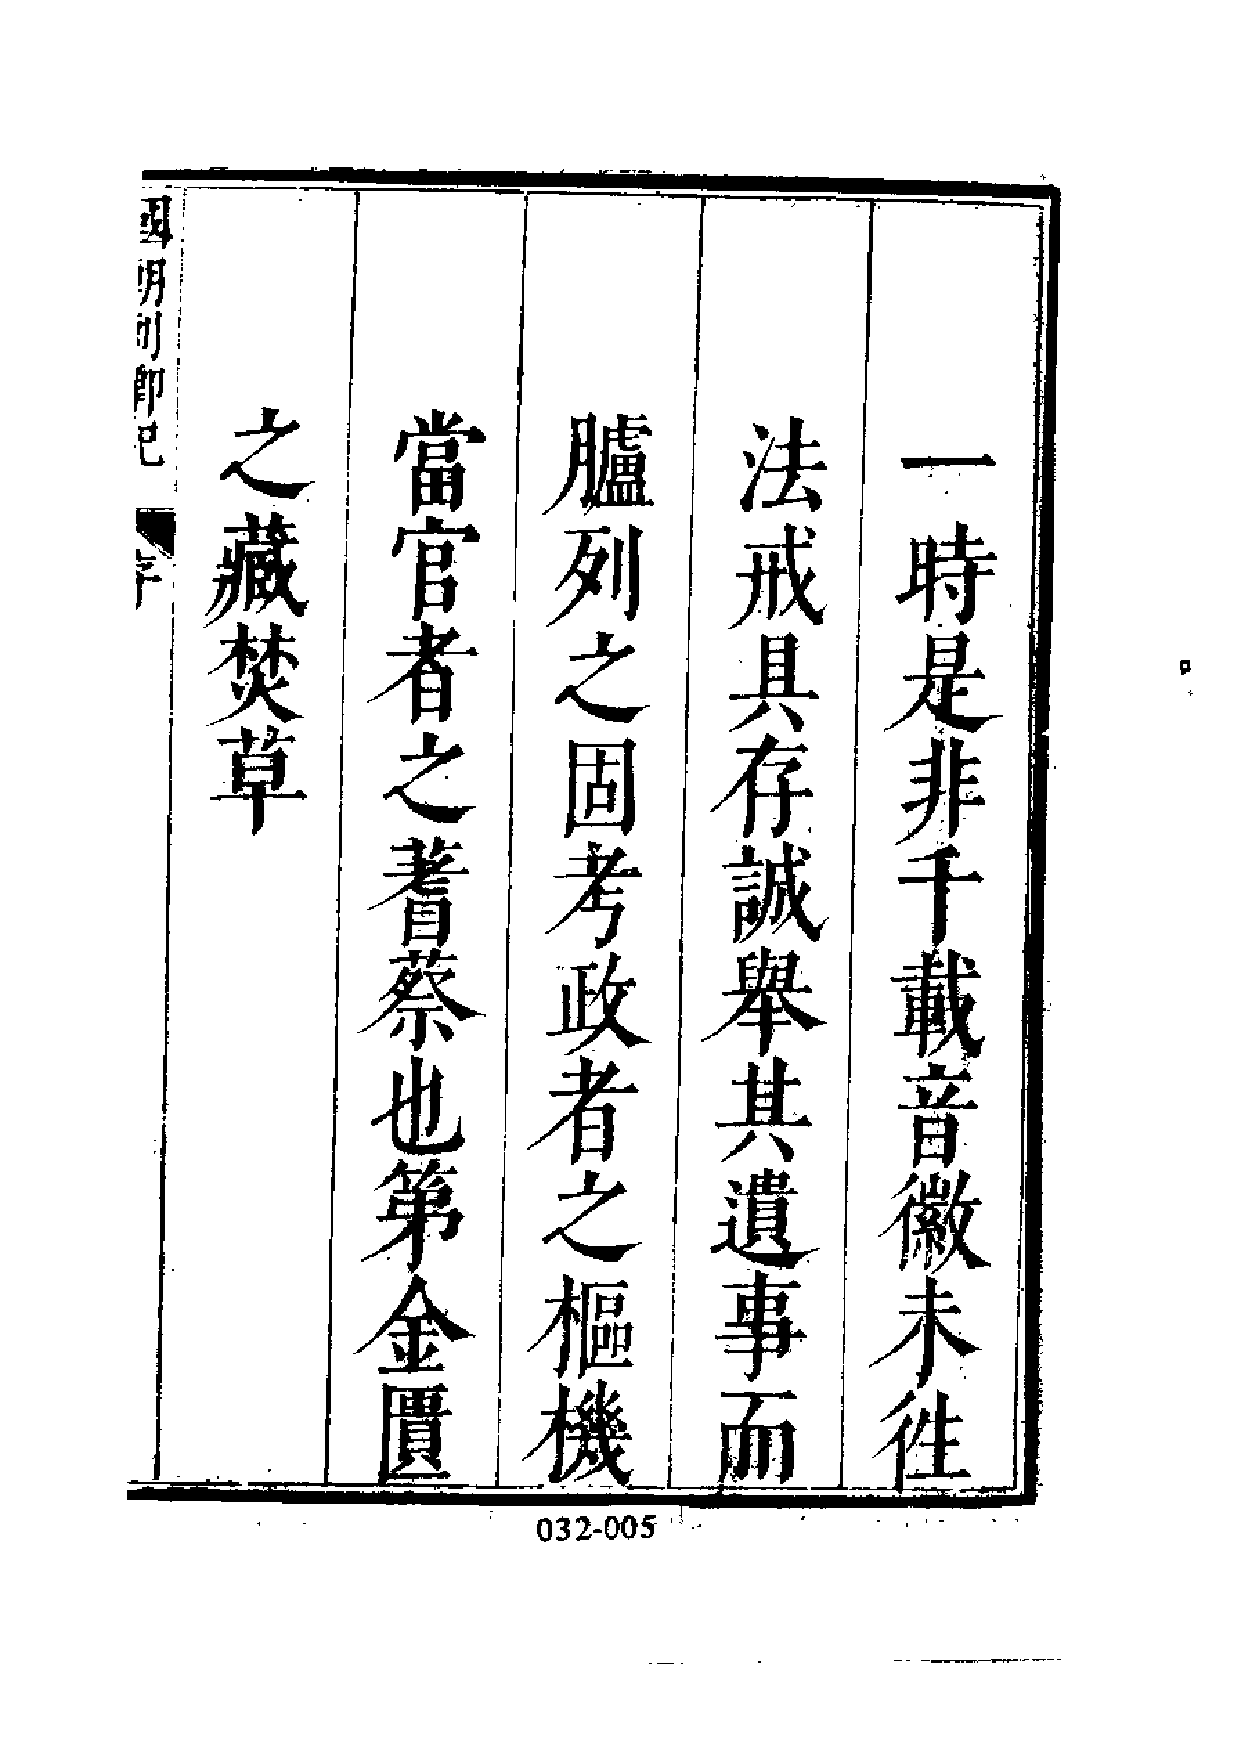 一時是非千載音徽未徃
法戒具存誠舉其遺事而
臚列之固考政者之樞機
當官者之蓍蔡也第金匱
之藏焚草
國朝列卿記
序
032-005